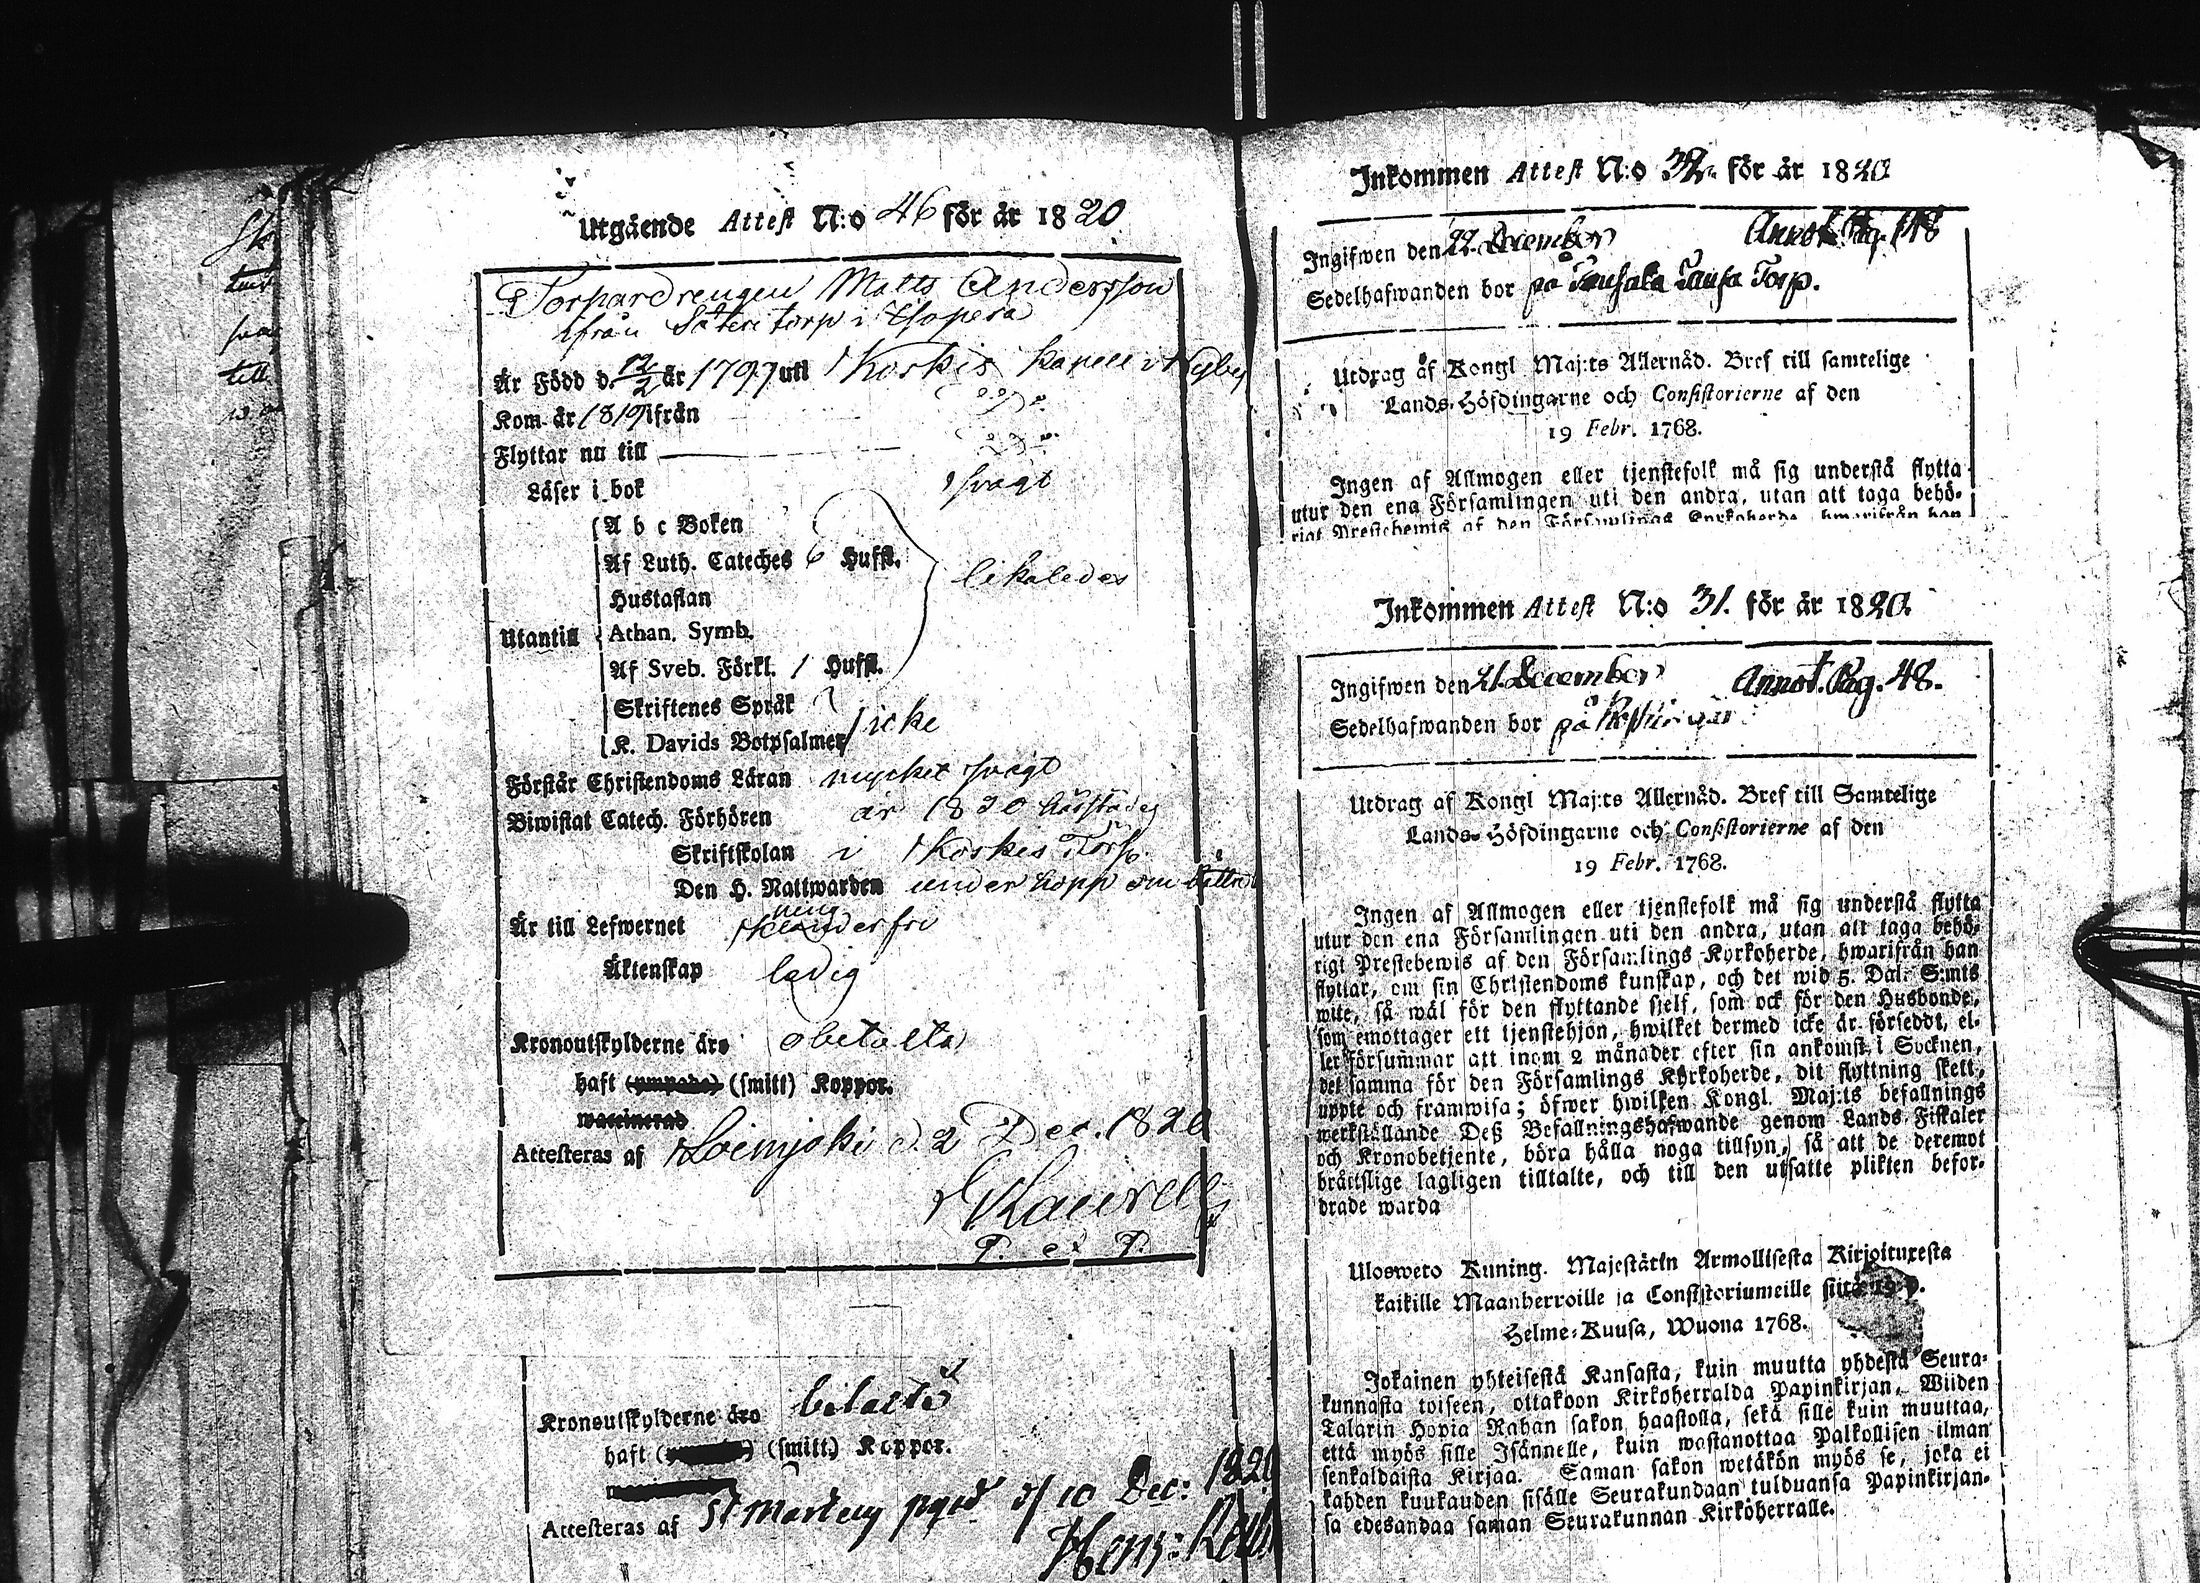 Utgående Attest N:o 46 för år 1820
Torpardrengen Matts Andersson
ifrån Säteri torp i
Är Född d. 12/2 år 1797 uti Koskis Kapell i
Kom år 1819 ifrån
Flyttar nu till
Läser i bok svagt
A b c Boken
Af Luth. Cateches 6 Hufst.
Hustaflan
likaledes
Utantill Athan. Symb.
Af Sveb. Förkl. 1 Hufst.
Skriftenes Språk
K. Davids Botpsalmer icke
Förstår Christendoms Läran mycket svagt
Biwistat Catech. Förhören år 1820
Skriftskolan i Koskis Torp
Den H. Nattwarden under hopp om
Är till Lefwernet
Äktenskap ledig
Kronoutskylderne äro obetalta
haft (ympade) (smitt) Koppor.
waccinerad
Attesteras af Loimjoki d. 2 Dec. 1820
Kaurell
P. et P.
Kronoutskylderne äro betalte
haft (smitt.) Koppor.
Attesteras af St Mortens pgrd d/ 10 Dec: 1820
Henr:
Inkommen Attest N:o 32 för år 1820
Ingifwen den 22. December Annot. Pag. 118
Sedelhafwanden bor på Torp.
Utdrag af Kongl Maj:ts Allernåd. Bref till samtelige
Lands-Höfdingarne och Consistorierne af den
19 Febr. 1768.
Ingen af Allmogen eller tjenstefolk må sig understå flytta
utur den ena Församlingen uti den andra, utan att taga behö-
rigt Prestebewis af den Församlings Kyrkoherde, hwarifrån han
Inkommen Attest N:o 31. för år 1820.
Ingifwen den 21. December Annot. Pag. 48.
Sedelhafwanden bor på
Utdrag af Kongl Maj:ts Allernåd. Bref till Samtelige
Lands-Höfdingarne och Consistorierne af den
19 Febr. 1768.
Ingen af Allmogen eller tjenstefolk må sig understå flytta
utur den ena Församlingen uti den andra, utan att taga behö-
rigt Prestebewis af den Församlings Kyrkoherde, hwarifrån han
flyttar, om sin Christendoms kunskap, och det wid 5. Dal. S:mts
wite, så wäl för den flyttande sjelf, som ock för den Husbonde,
som emottager ett tjenstehjon, hwilket dermed icke är försedt, el-
ler försummar att inom 2 månader efter sin ankomst i Socknen,
det samma för den Församlings Kyrkoherde, dit flyttning skett,
uppte och framwisa; öfwer hwilken Kongl. Maj:ts befallnings
werkställande Deß Befallningshafwande genom Lands Fiskaler
och Kronobetjente, böra hålla noga tillsyn, så att de deremot
bråttslige lagligen tilltalte, och till den utsatte plikten befor-
drade warda
Ulosweto Kuning. Majestätin Armollisesta Kirjoituxesta
kaikille Maanherroille ja Consistoriumeille siitä 19 p.
Helme-Kuusa, Wuona 1768.
Jokainen yhteisestä Kansasta, kuin muutta yhdestä Seura-
kunnasta toiseen, ottakoon Kirkoherralda Papinkirjan, Wiiden
Talarin Hopia Rahan sakon haastolla, sekä sille kuin muuttaa,
että myös sille Isännelle, kuin wastanottaa Palkollisen ilman
senkaldaista Kirjaa. Saman sakon wetäkön myös se, joka ei
kahden kuukauden sisälle Seurakundaan tulduansa Papinkirjan-
sa edesandaa saman Seurakunnan Kirkoherralle.